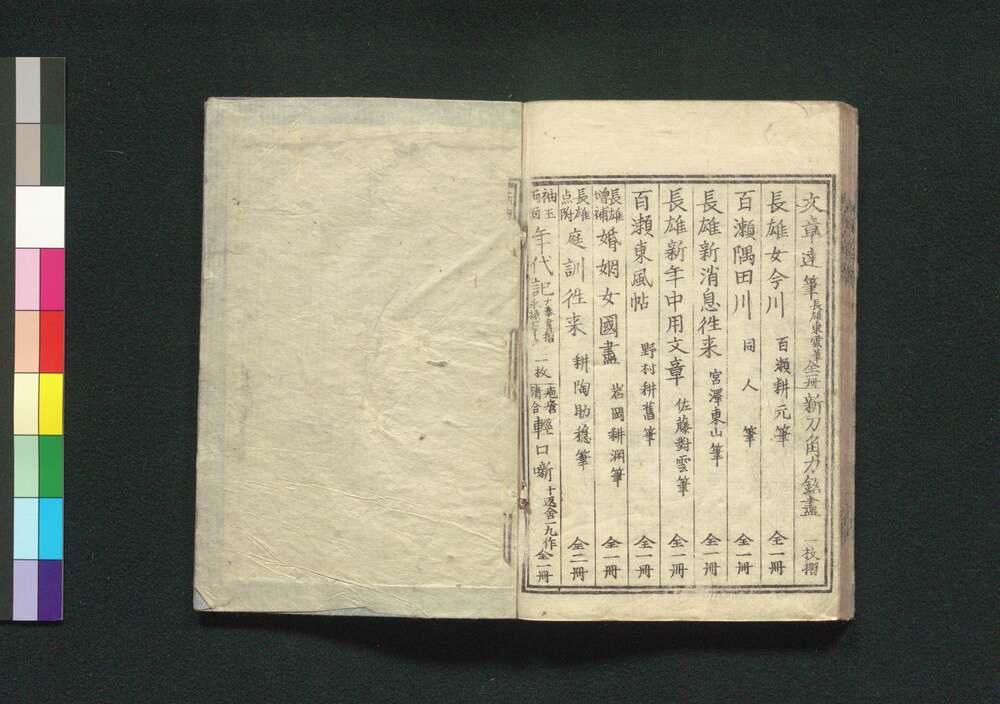 文章達筆 長雄東雲筆 全一冊 新刀角力銘盡 一枚摺
長雄女今川 百瀬耕元筆 全一冊
百瀬隅田川 同人筆 全一冊
長雄新消息徃来 宮澤東山筆 全一冊
長雄新年中用文章 佐藤對雲筆 全一冊
百瀬東風帖 野村耕舊筆 全一冊
長雄増補 婚姻女國盡 岩岡耕渕筆 全一冊
長雄点附 庭訓徃来 耕陶助穏筆 全二冊
袖玉両面 年代記 一枚 輕口噺 十返舎一九作 全一冊